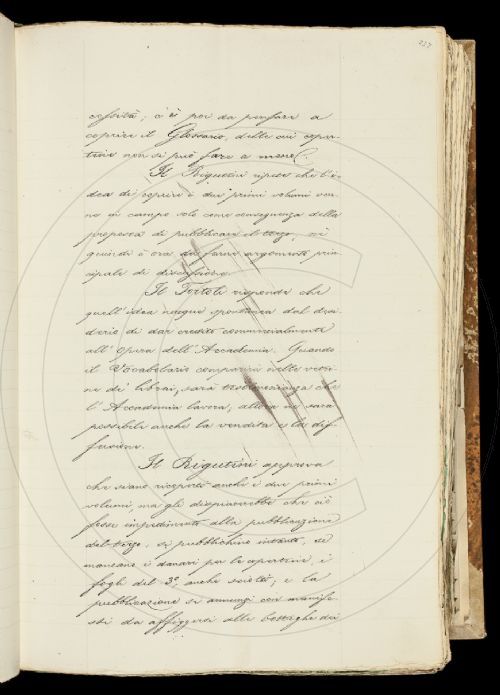 227
cessità; c'è poi da pensare a
coprire il Glossario, delle cui coper-
tine non si può fare a meno.
Il Rigutini ripete che l'i-
dea di coprire i due primi volumi ven-
ne in campo solo come conseguenza della
proposta di pubblicare il terzo, nè
quindi è ora da farne argomento prin-
cipale di discussione.
Il Tortoli risponde che
quell'idea nacque spontanea dal desi-
derio di dar credito commercialmente
all'Opera dell'Accademia. Quando
il Vocabolario comparirà nelle vetri-
ne di librai, sarà testimonianza che
l'Accademia lavora, allora ne sarà
possibile anche la vendita e la dif-
fusione.
Il Rigutini approva
che siano ricoperti anche i due primi
volumi, ma gli dispiacerebbe che ciò
fosse impedimento alla pubblicazione
del terzo, si pubblichino intanto, se
mancano i danari per le copertine, i
fogli del 3º, anche sciolti; e la
pubblicazione si annunzi con manife-
sti da affiggersi alle botteghe dei